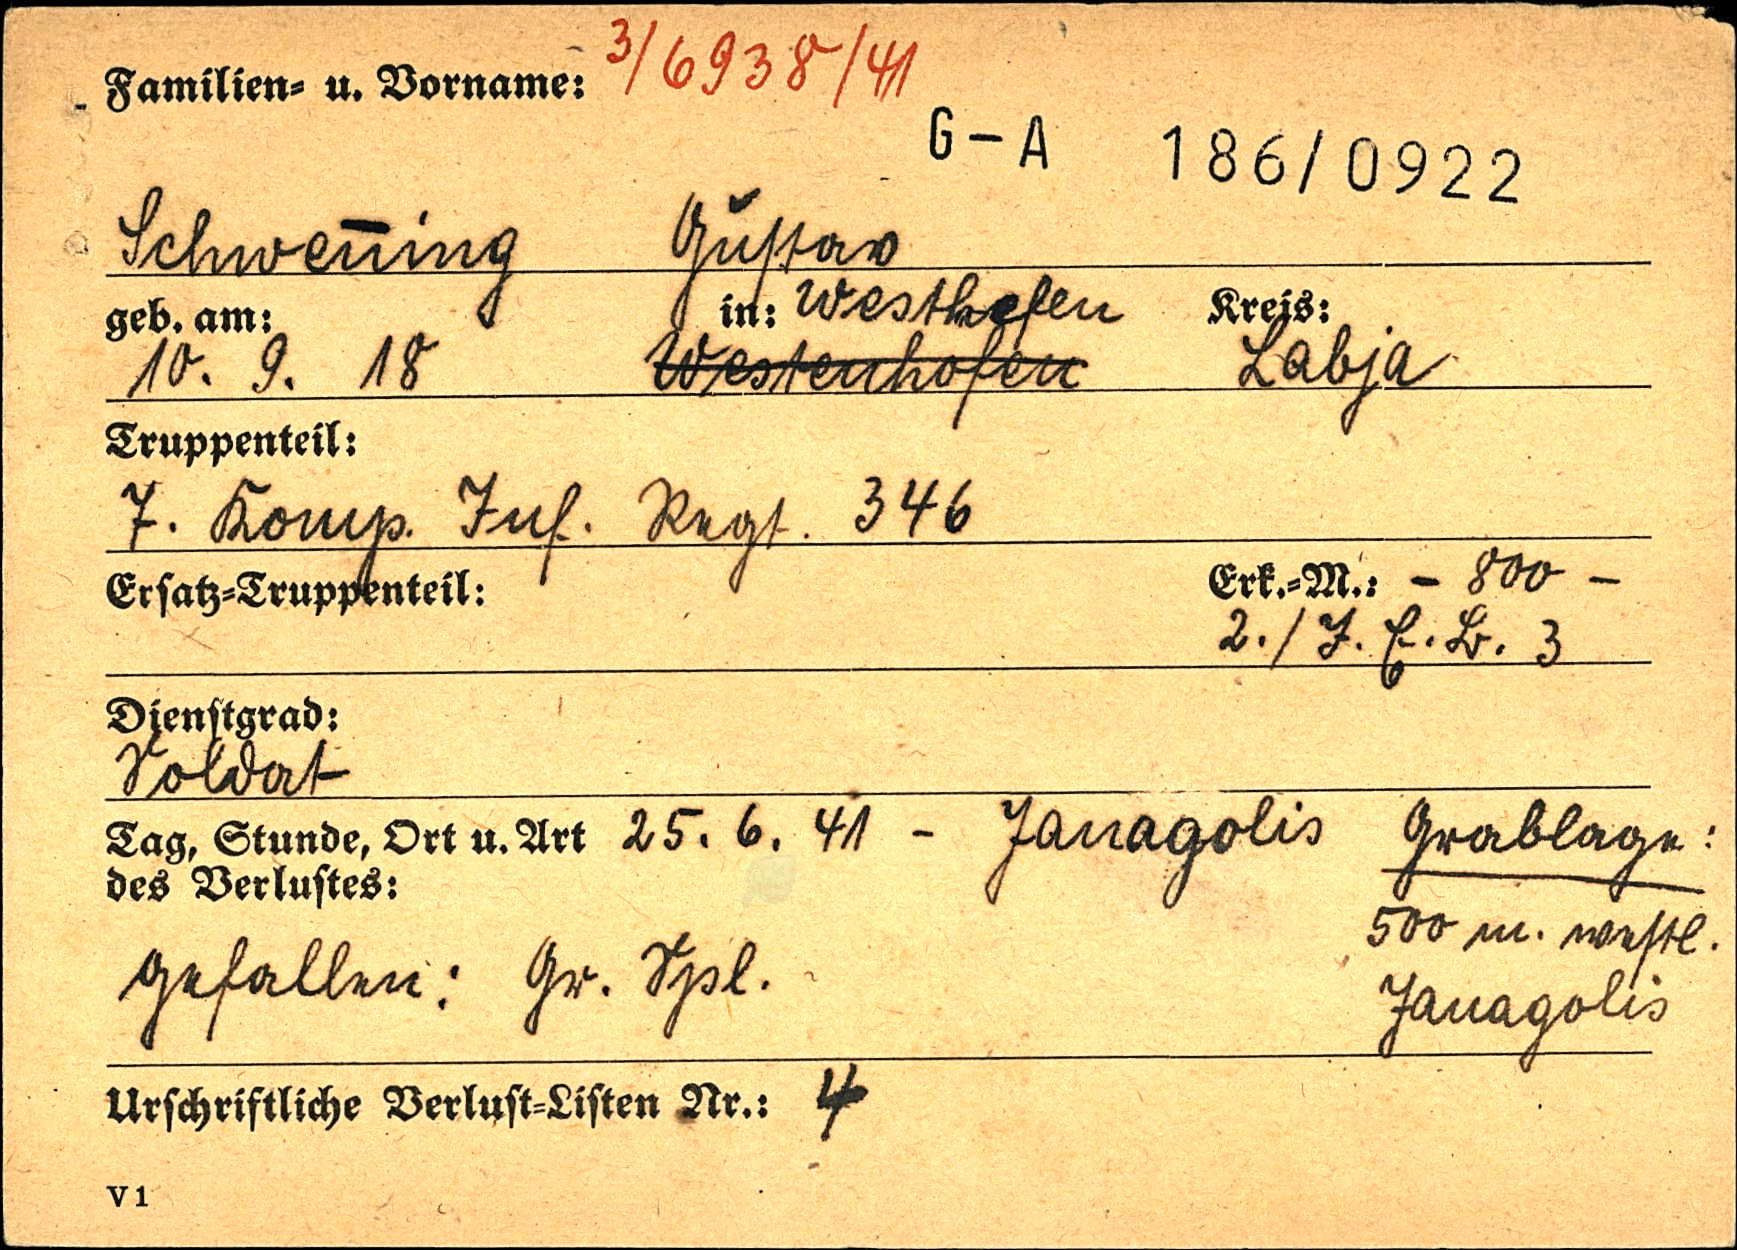 Familien- u. Vorname: 3/6938/41
G-A 186/0922
Schwen̅ing Gustav
geb. am: in: Westhofen Kreis:
10. 9. 18 Westenhofen Labja
Truppenteil:
7. Komp. Inf. Regt. 346
Ersatz-Truppenteil: Erk.-M.: - 800 -
2./ J. E. B. 3
Dienstgrad:
Soldat
Tag, Stunde, Ort u. Art 25. 6. 41 - Janagolis Grablage:
des Verlustes:
500 m. westl.
gefallen: Gr. Spl.
Janagolis
Urschriftliche Verlust-Listen Nr.: 4
V 1